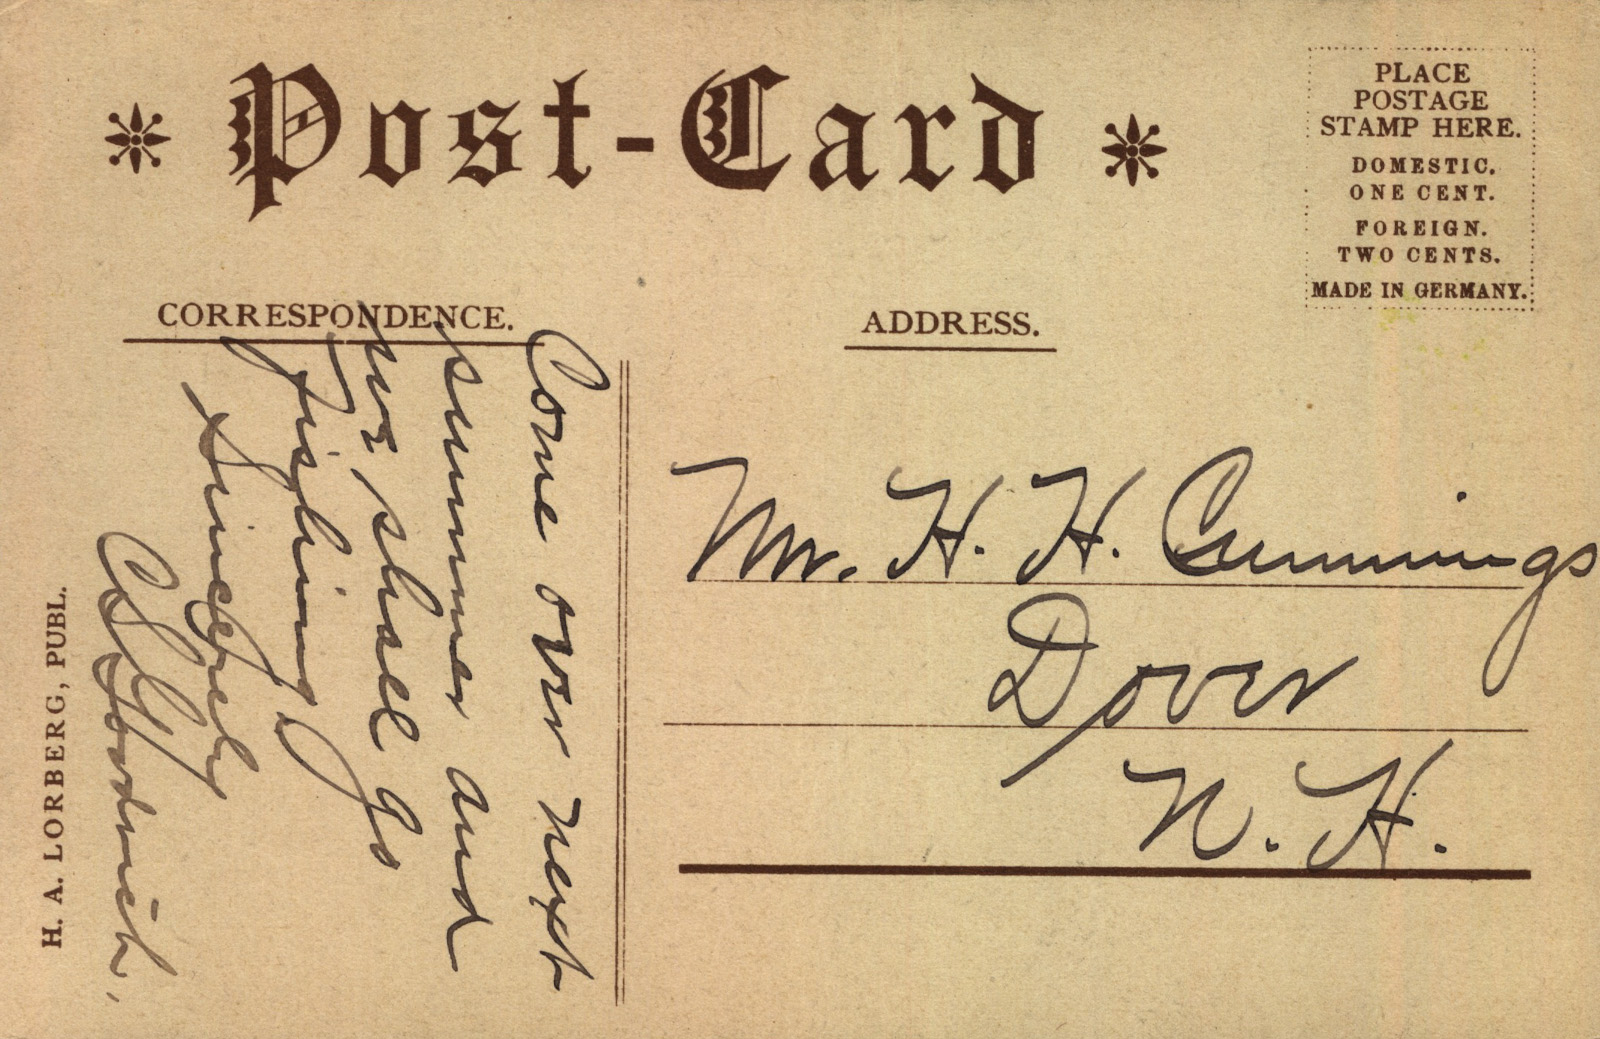 Post-Card
PLACE
POSTAGE
STAMP HERE.
DOMESTIC.
ONE CENT.
FOREIGN.
TWO CENTS.
MADE IN GERMANY.
CORRESPONDENCE.
ADDRESS.
Come over next
summer and
we shall go
fishing
Sincerely
Goodrich.
Mr. H. H. Cummings
Dover
N. H.
H. A. LORBERG, PUBL.